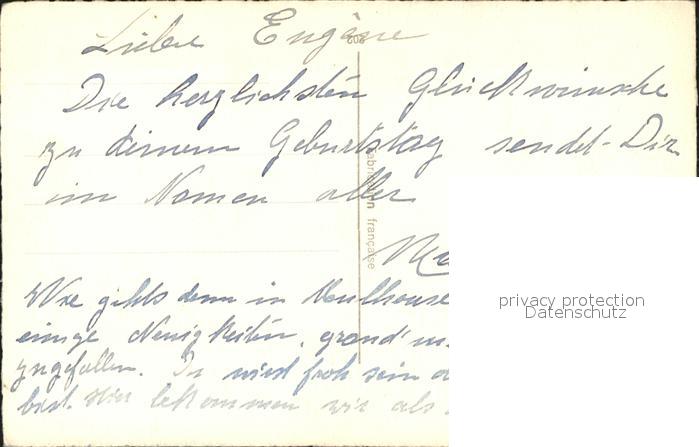 Liebe Eugène
202
Die herzlichsten Glückwünsche
zu deinem Geburtstag sendet Dir
im Namen aller
fabrication française
Wie gehts denn in Mulhouse
einige Neuigkeiten, grand'm
zugefallen. Du wirst froh sein
bist. Hier bekommen wir als
privacy protection
Datenschutz